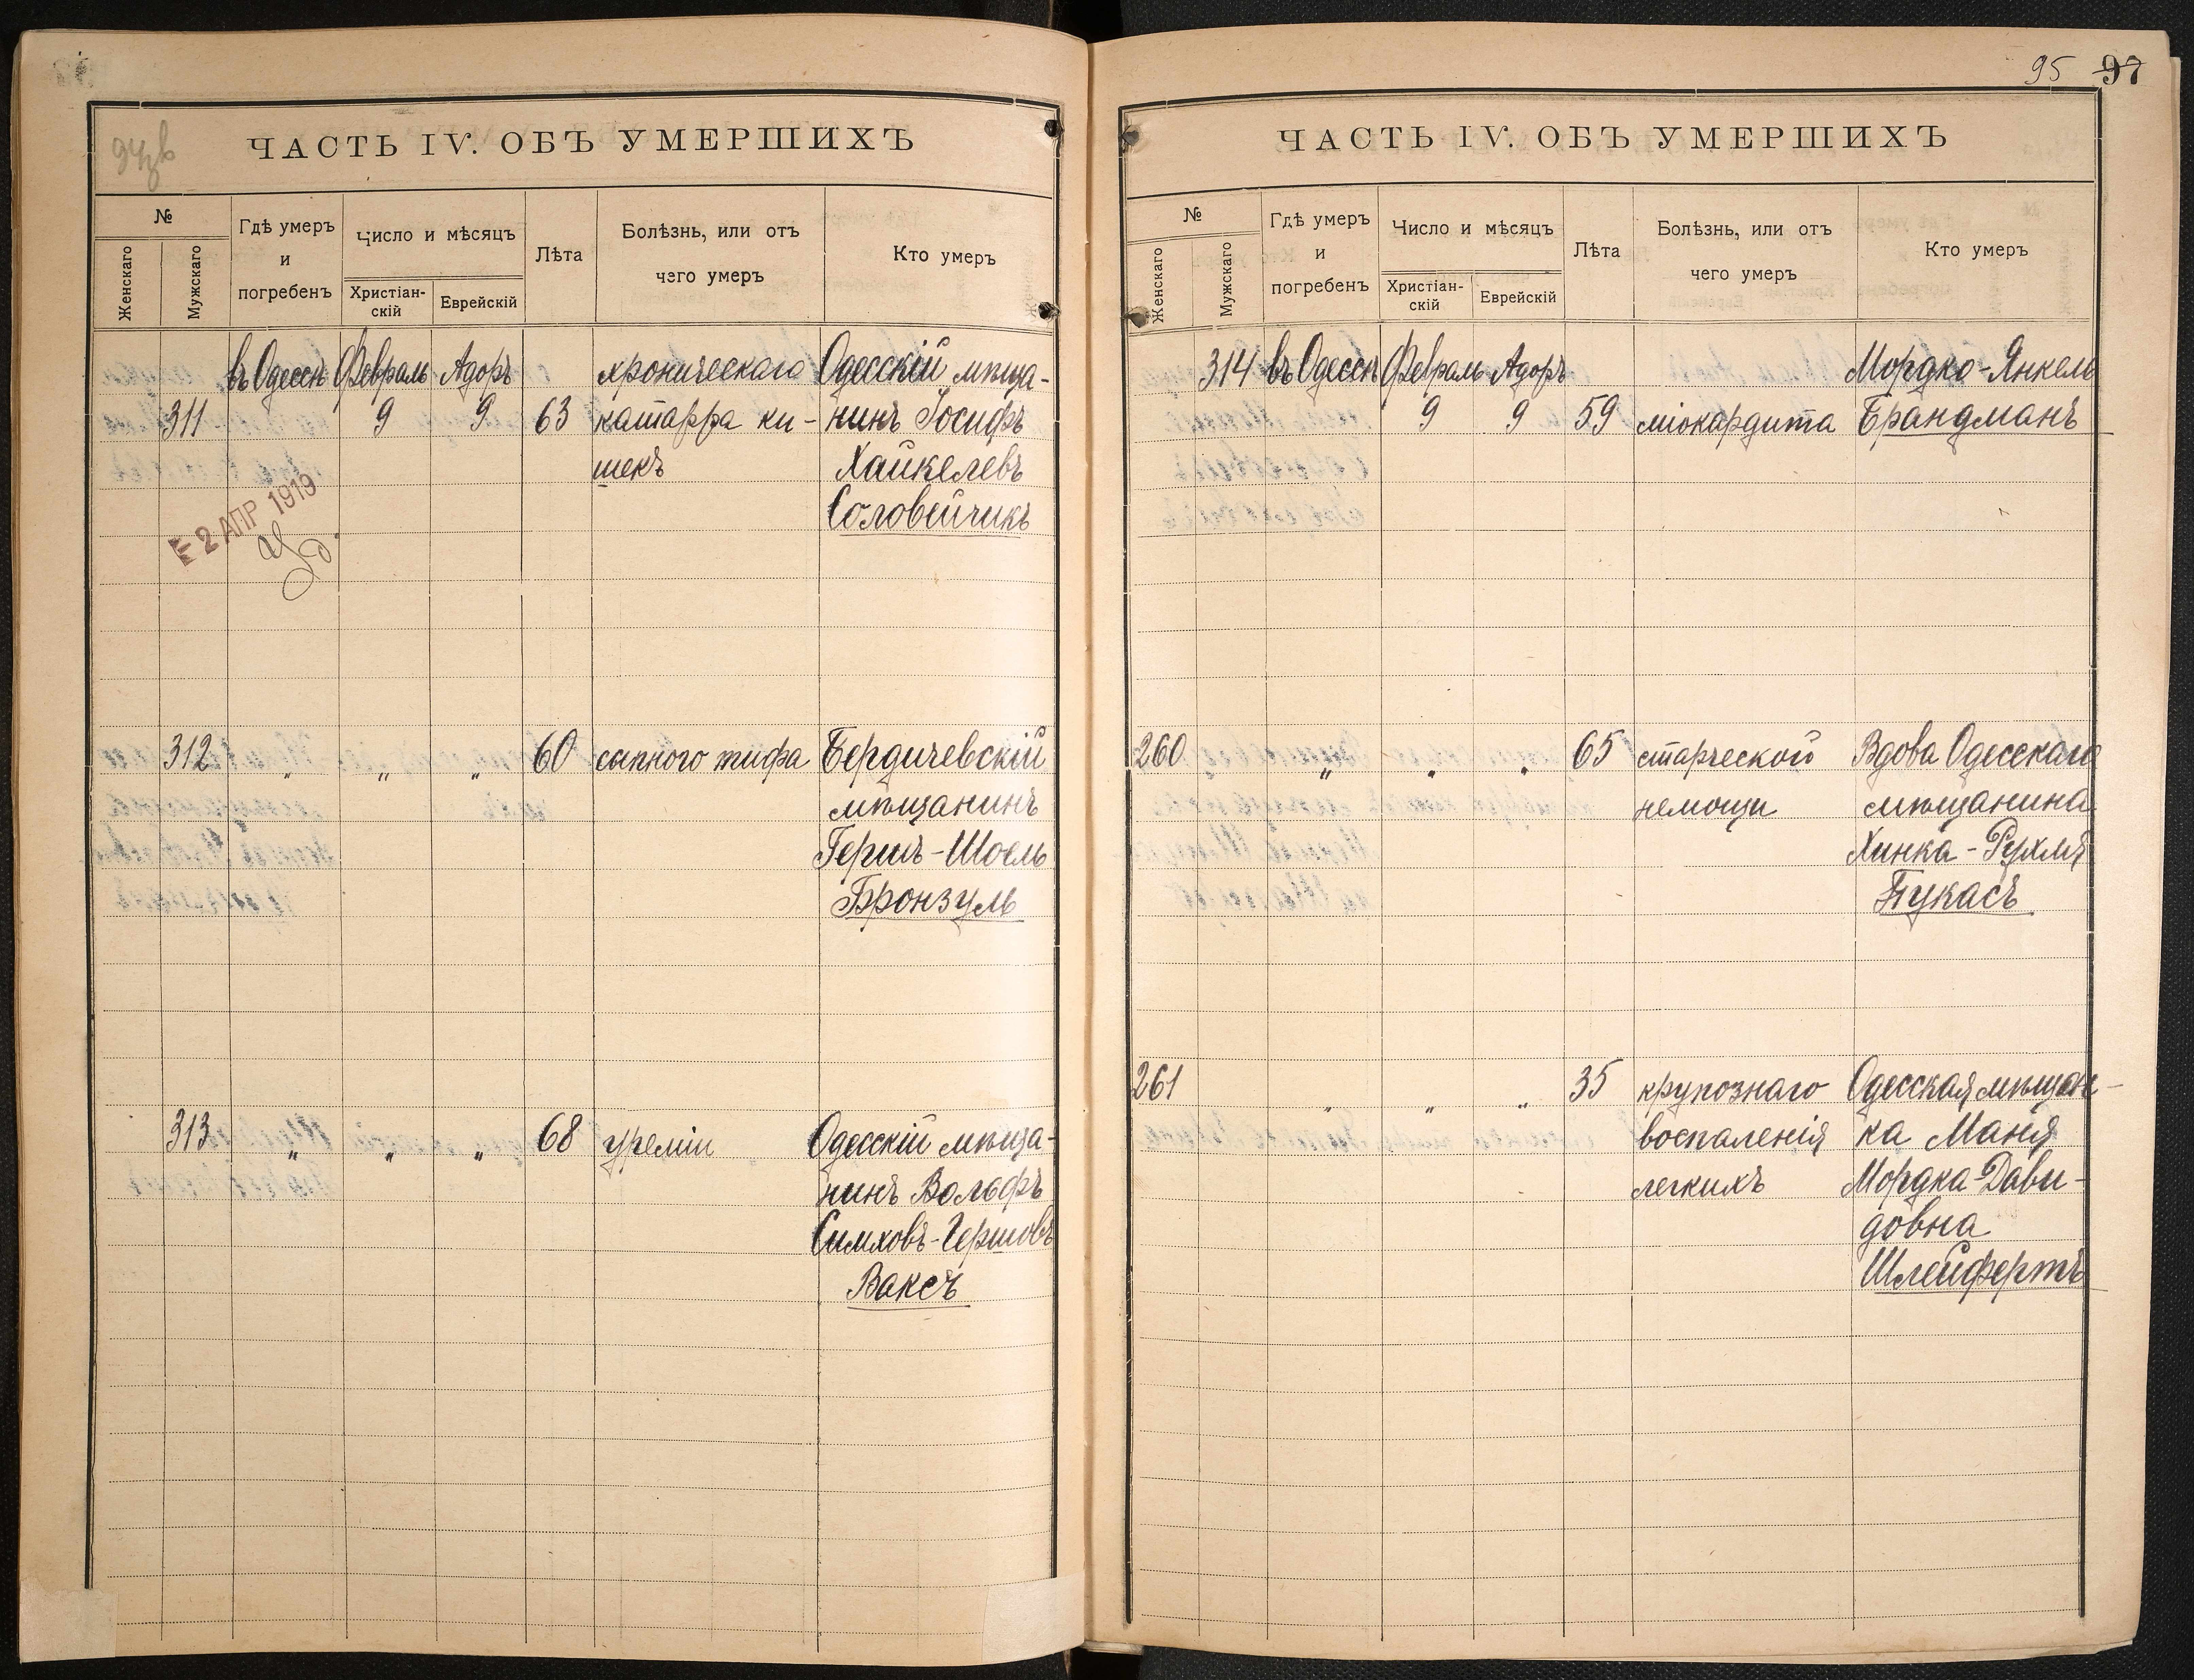 94 об
ЧАСТЬ IV. ОБЪ УМЕРШИХЪ
№
Женскаго
Мужскаго
Гдѣ умеръ
и
погребенъ
Число и мѣсяцъ
Христіан-
скій
Еврейскій
Лѣта
Болѣзнь, или отъ
чего умеръ
Кто умеръ
въ Одессѣ Февраль Адоръ хроническаго Одесскій мѣща-
311 9 9 63 катарра ки- нинъ Іосифъ
шекъ Хайкелевъ
Соловейчикъ
2 АПР 1919
312 „ „ „ 60 сыпного тифа Бердичевскій
мѣщанинъ
Гершъ-Шоель
Бронзуль
313 „ „ „ 68 уреміи Одесскій мѣща-
нинъ Вольфъ
Симховъ-Гершовъ
Ваксъ
95 97
ЧАСТЬ IV. ОБЪ УМЕРШИХЪ
№
Женскаго
Мужскаго
Гдѣ умеръ
и
погребенъ
Число и мѣсяцъ
Христіан-
скій
Еврейскій
Лѣта
Болѣзнь, или отъ
чего умеръ
Кто умеръ
314 въ Одессѣ Февраль Адоръ Мордко-Янкель
9 9 59 міокардита Брандманъ
260 „ „ „ 65 старческой Вдова Одесскаго
немощи мѣщанина
Хинка-Рухля
Пукасъ
261 „ „ „ 35 крупознаго Одесская мѣщан-
воспаленія ка Маня
легкихъ Мордка-Дави-
довна
Шлейфертъ